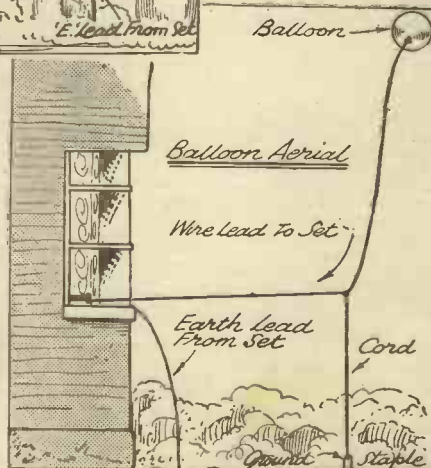 'E.' Lead From Set
Balloon
Balloon Aerial
Wire lead To Set
Earth Lead
From Set
Cord
Ground
Staple